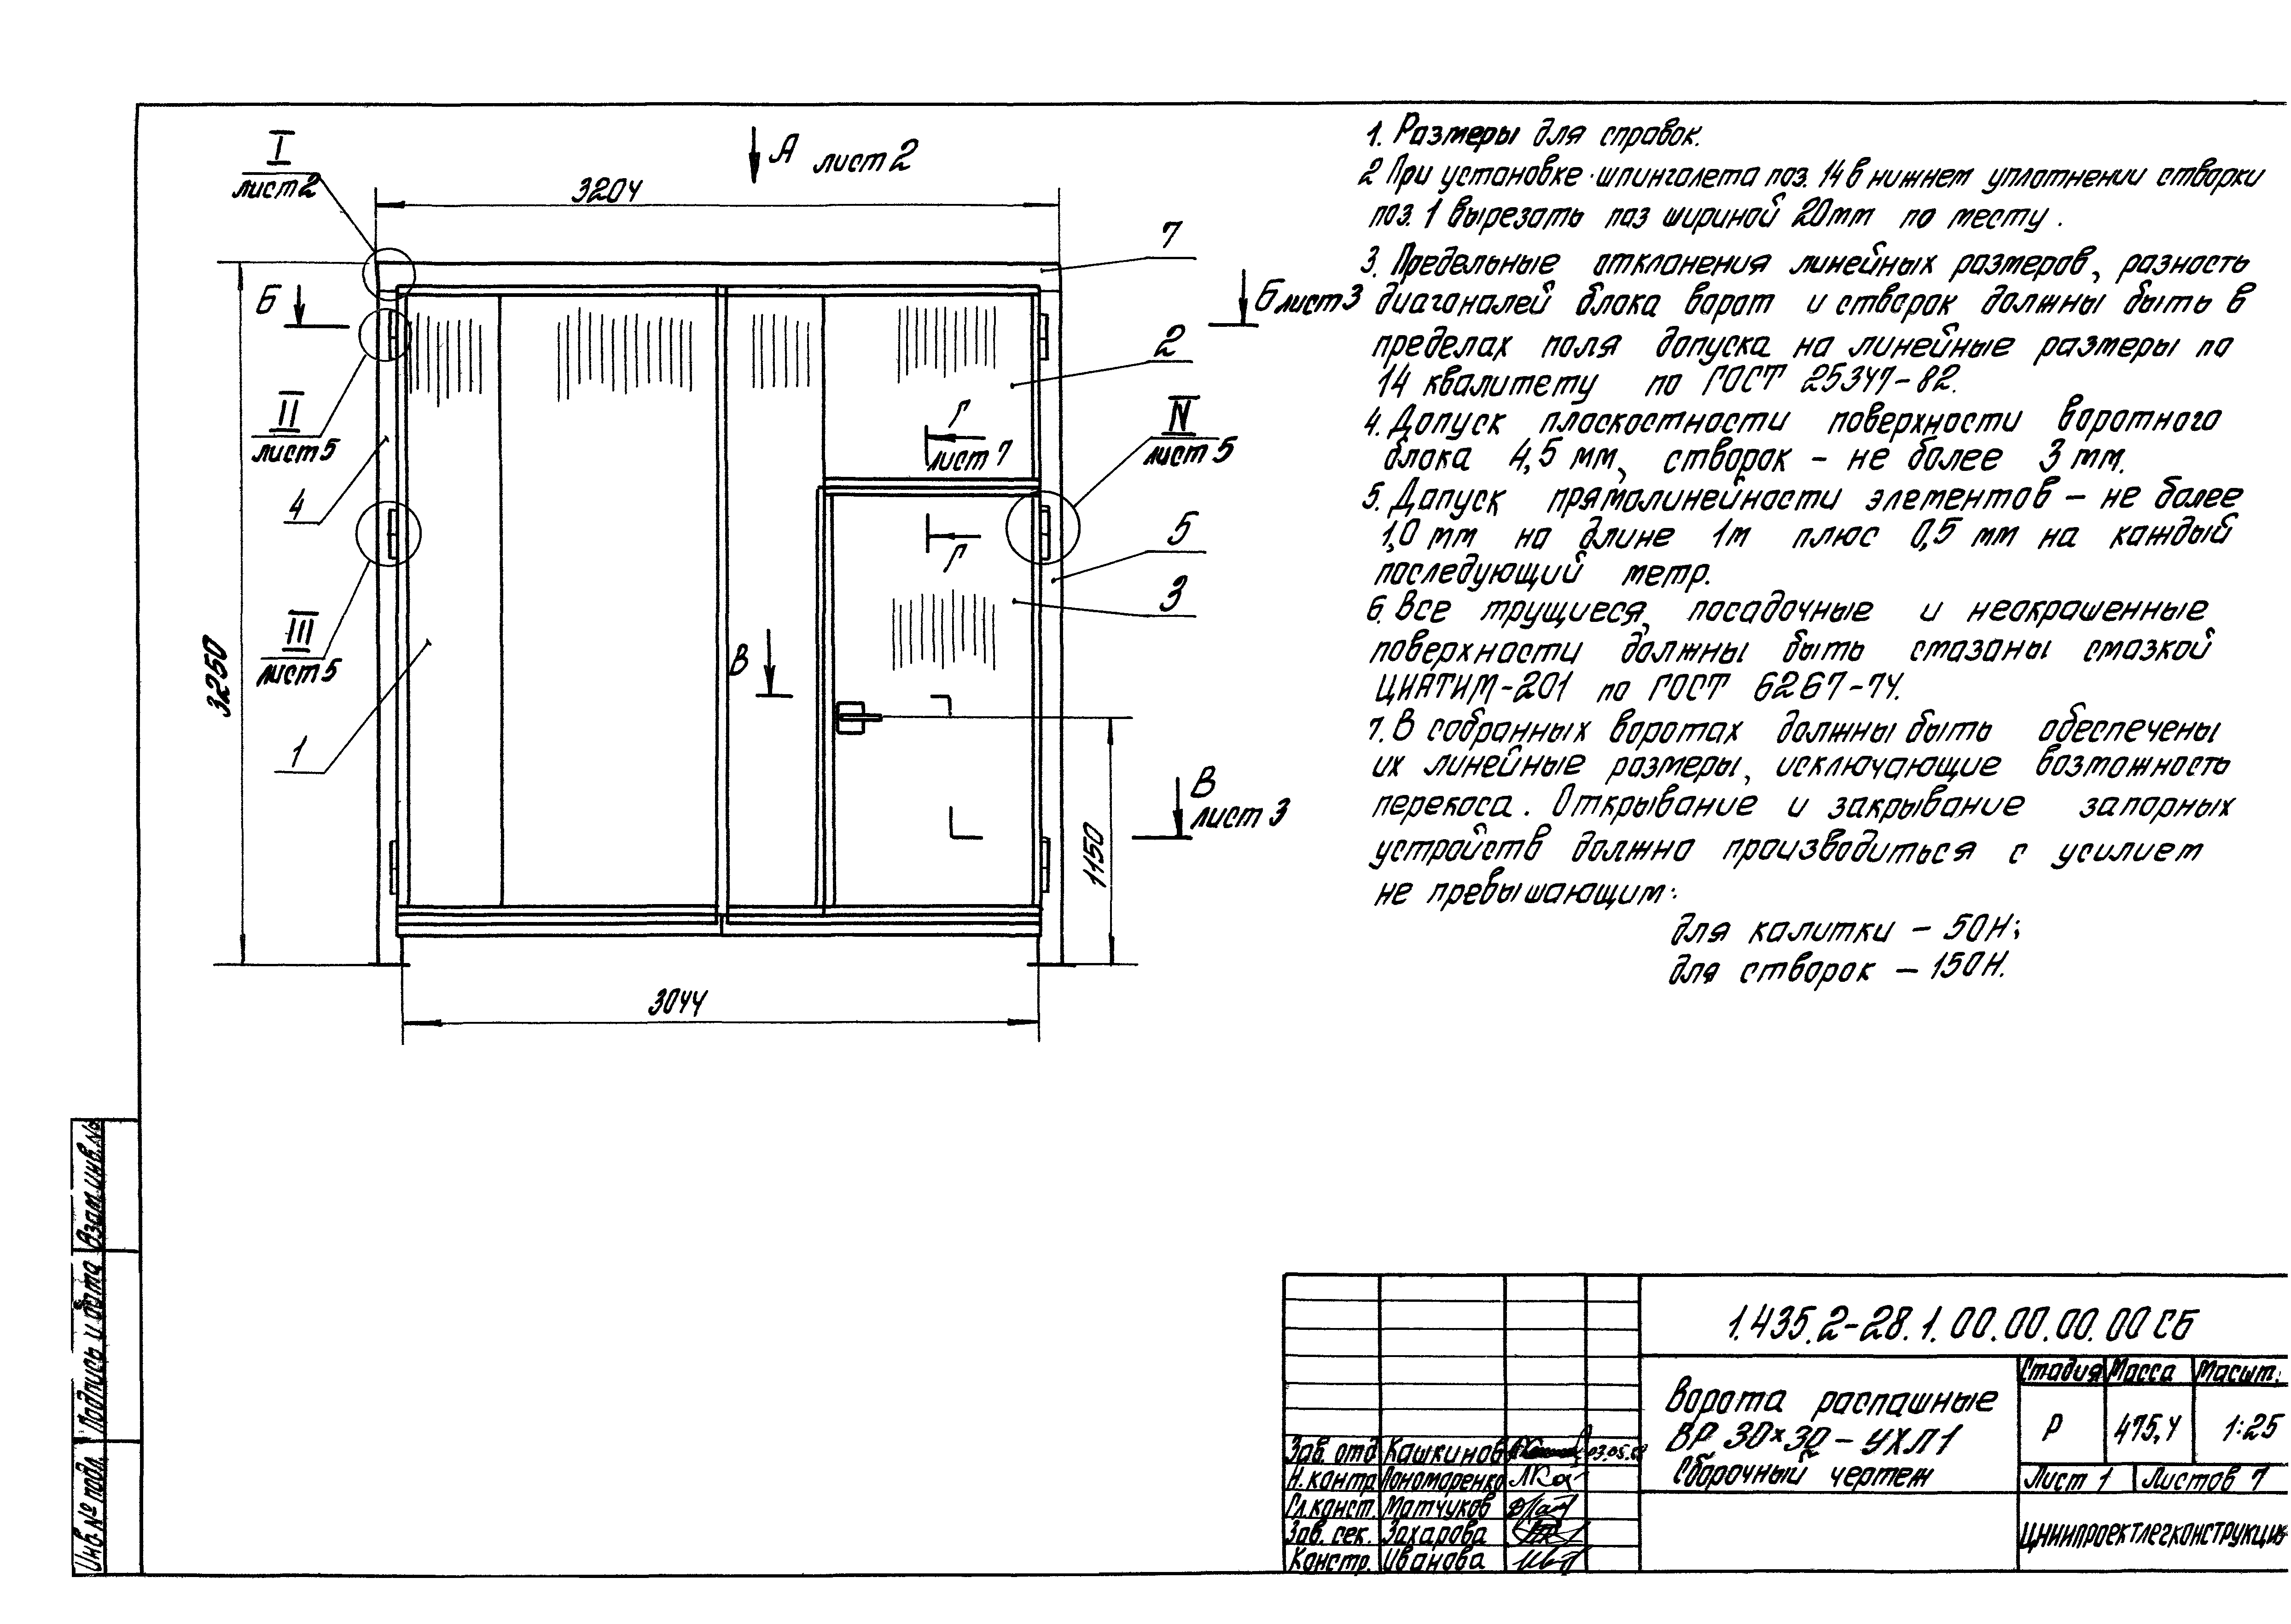 I
лист 2
А лист 2
3204
7
Б
Б лист 3
2
II
лист 5
Г
лист 7
IV
лист 5
4
5
Г
3
III
лист 5
3250
В
1
В
лист 3
1150
3044
1. Размеры для справок.
2 При установке шпингалета поз. 14 в нижнем уплотнении створки
поз. 1 вырезать паз шириной 20мм по месту.
3. Предельные отклонения линейных размеров, разность
диагоналей блока ворот и створок должны быть в
пределах поля допуска на линейные размеры по
14 квалитету по ГОСТ 25347-82.
4. Допуск плоскостности поверхности воротного
блока 4,5 мм, створок - не более 3 мм.
5. Допуск прямолинейности элементов - не более
1,0 мм на длине 1м плюс 0,5 мм на каждый
последующий метр.
6. Все трущиеся, посадочные и неокрашенные
поверхности должны быть смазаны смазкой
ЦИАТИМ-201 по ГОСТ 6267-74.
7. В собранных воротах должны быть обеспечены
их линейные размеры, исключающие возможность
перекоса. Открывание и закрывание запорных
устройств должно производиться с усилием
не превышающим:
для калитки - 50Н;
для створок - 150Н.
Взам.инв.№
Подпись и дата
Инв.№ подл.
1.435.2-28.1.00.00.00.00 СБ
Ворота распашные
ВР 30×30-УХЛ1
Сборочный чертеж
Стадия Масса Масшт.
Р 475,4 1:25
Лист 1 Листов 7
ЦНИИПРОЕКТЛЕГКОНСТРУКЦИЯ
Зав. отд Кашкинов
Н.контр Пономоренко
Гл.конст. Матчуков
Зав. сек. Захарова
Констр. Иванова